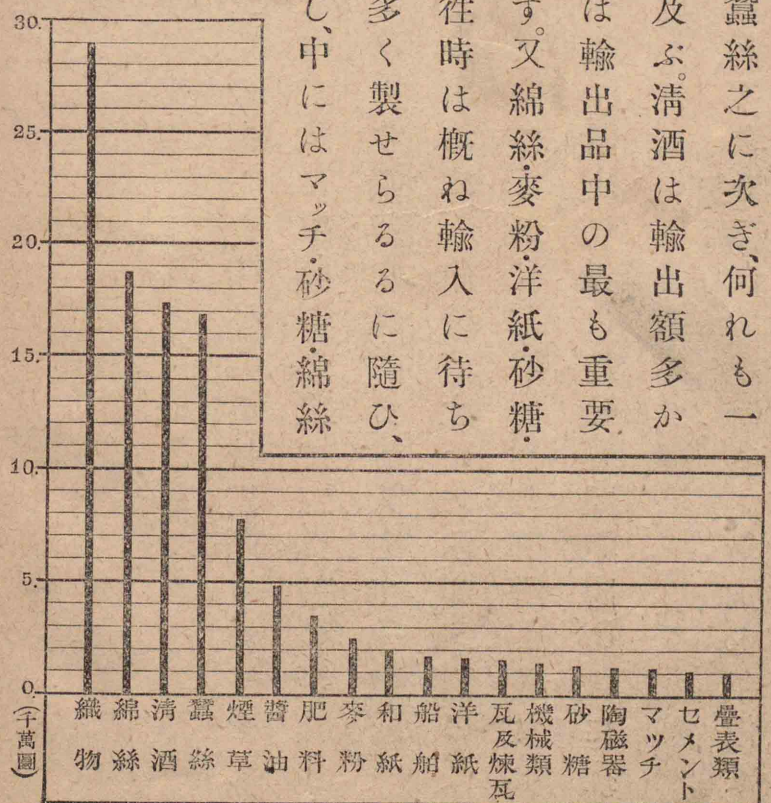 蠶絲之に次ぎ、何れも一
及ぶ。淸酒は輸出額多か
は輸出品中の最も重要
す。又綿絲・麥粉・洋紙・砂糖・
往時は槪ね輸入に待ち
多く製せらるるに隨ひ、
し、中にはマッチ・砂糖・綿絲
30.
25.
20.
15.
10.
5.
0.
(千萬圓)
織物
綿絲
淸酒
蠶絲
煙草
醬油
肥料
麥粉
和紙
船舶
洋紙
瓦及煉瓦
機械類
砂糖
陶磁器
マッチ
セメント
疊表類